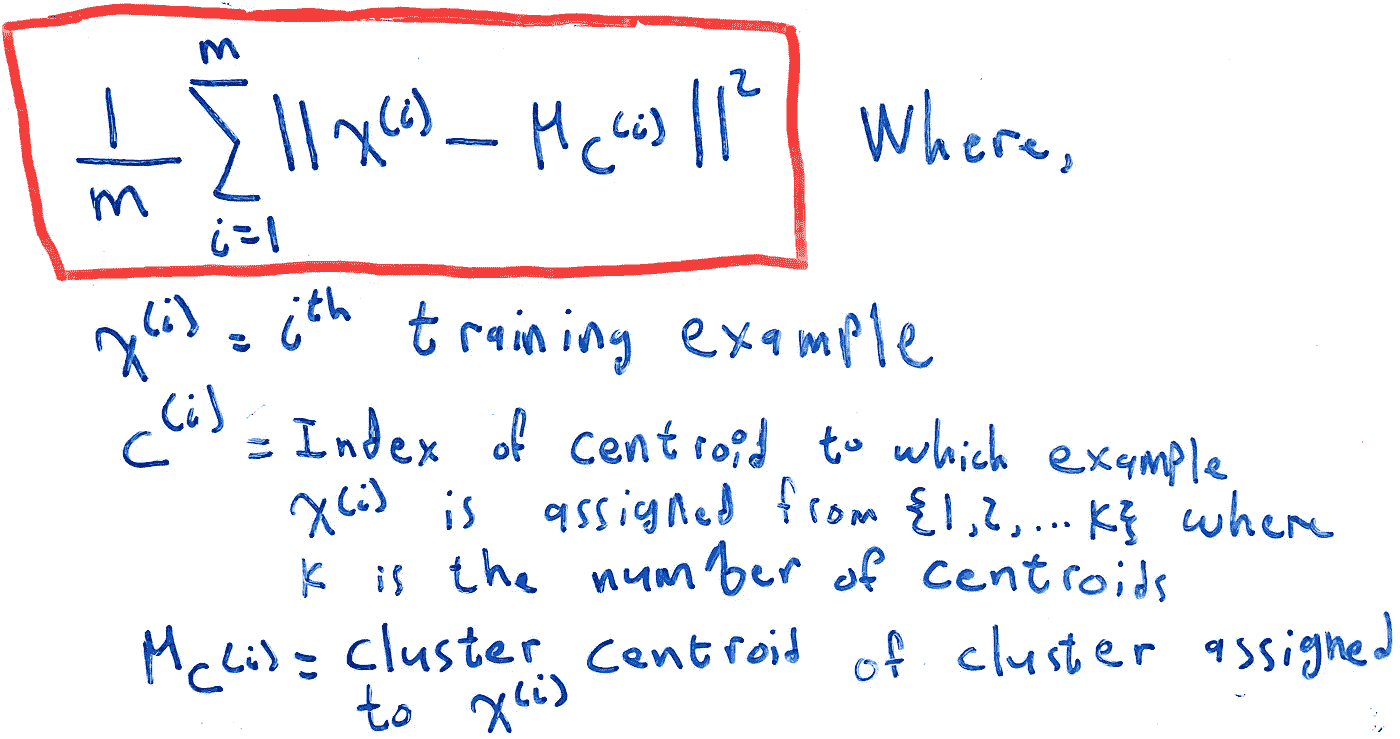 1/m Σ_{i=1}^{m} ||x^{(i)} - μ_{c^{(i)}}||^2 Where,
x^{(i)} = i^{th} training example
c^{(i)} = Index of centroid to which example
x^{(i)} is assigned from {1,2,...K} where
K is the number of centroids
μ_{c^{(i)}} = cluster centroid of cluster assigned
to x^{(i)}